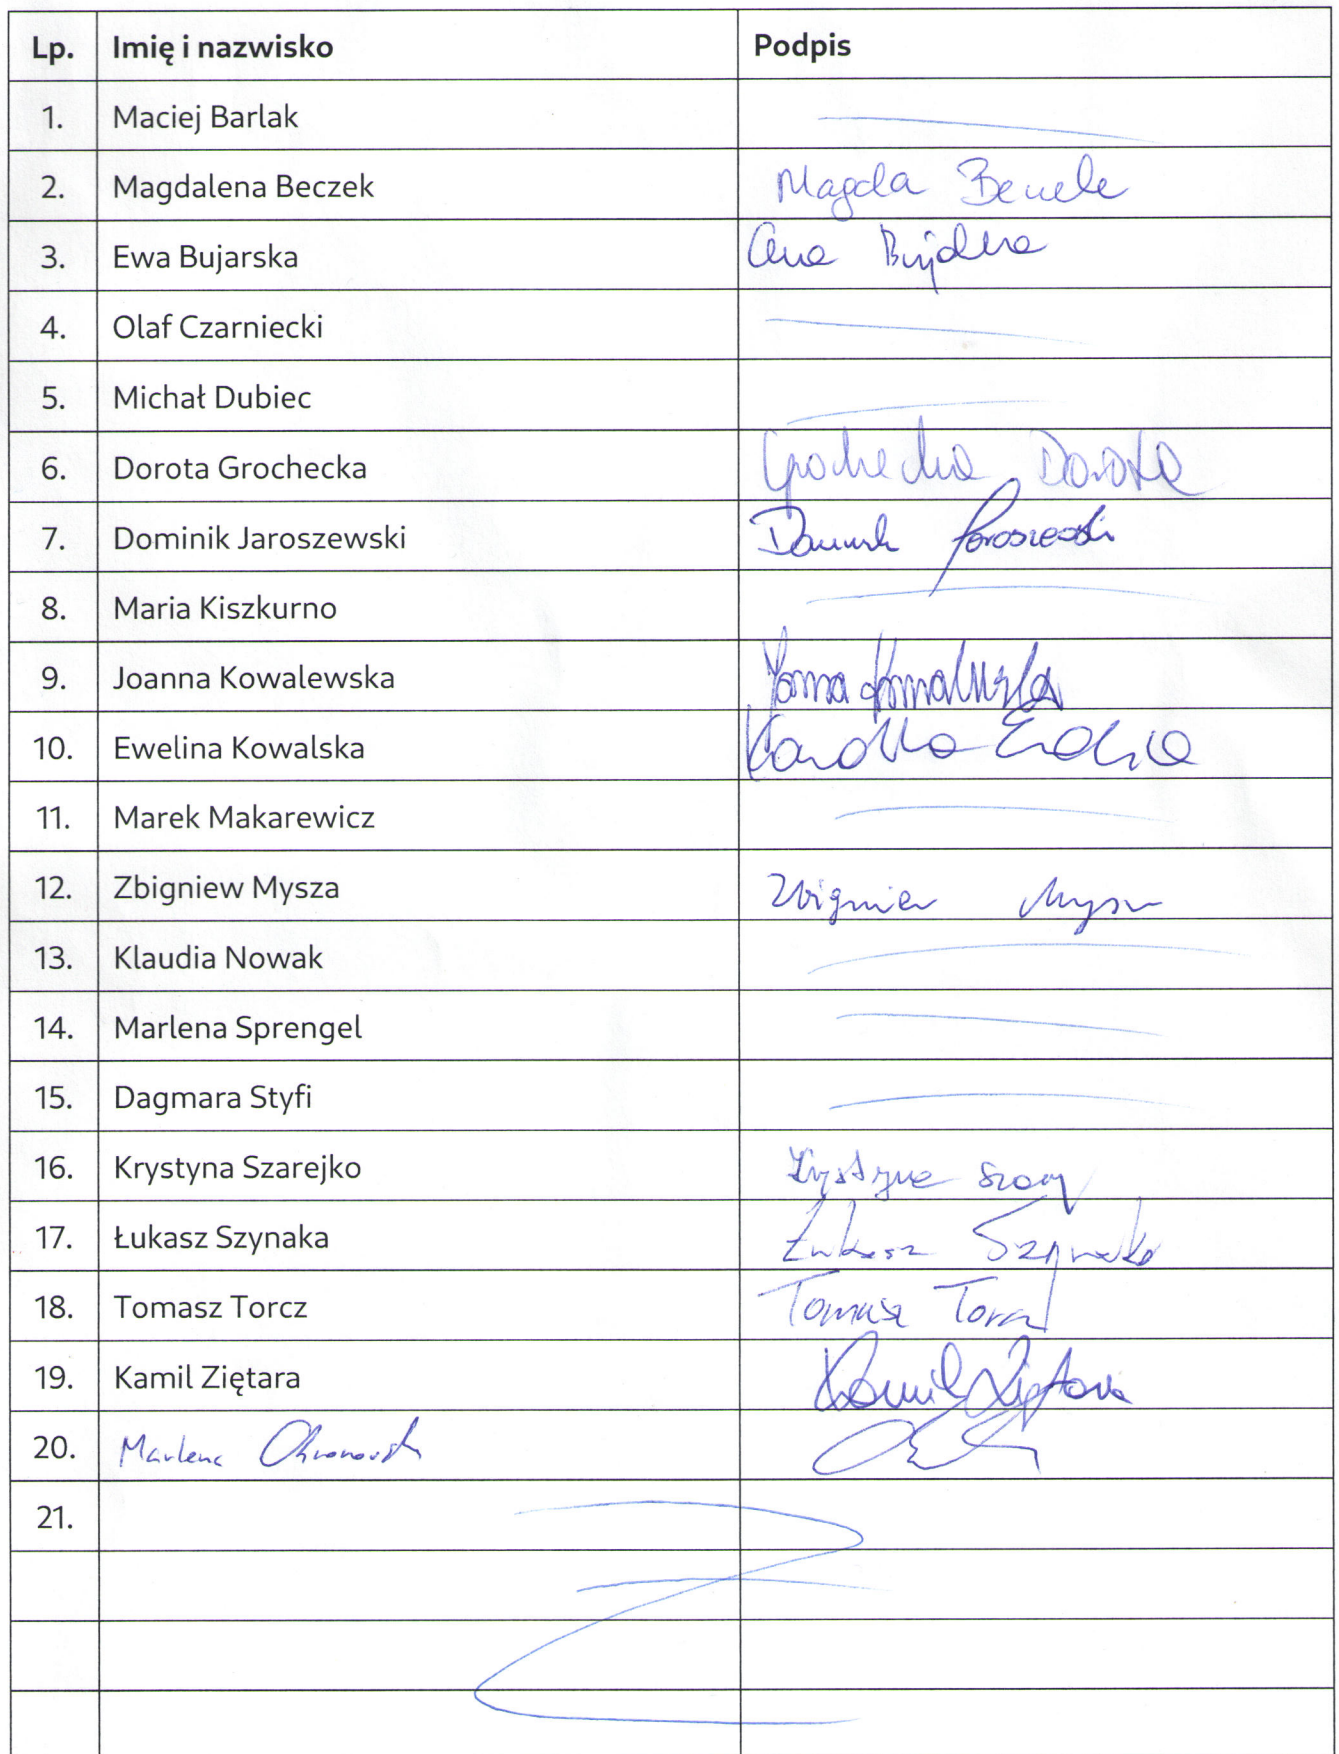 Lp. Imię i nazwisko Podpis
1. Maciej Barlak
2. Magdalena Beczek Magda
3. Ewa Bujarska
4. Olaf Czarniecki
5. Michał Dubiec
6. Dorota Grochecka Grochecka Dorota
7. Dominik Jaroszewski Dominik Jaroszewski
8. Maria Kiszkurno
9. Joanna Kowalewska Joanna Kowalewska
10. Ewelina Kowalska
11. Marek Makarewicz
12. Zbigniew Mysza Zbigniew
13. Klaudia Nowak
14. Marlena Sprengel
15. Dagmara Styfi
16. Krystyna Szarejko Krystyna
17. Łukasz Szynaka Łukasz Szynaka
18. Tomasz Torcz Tomasz Torcz
19. Kamil Ziętara Kamil Ziętara
20. Marlena
21.